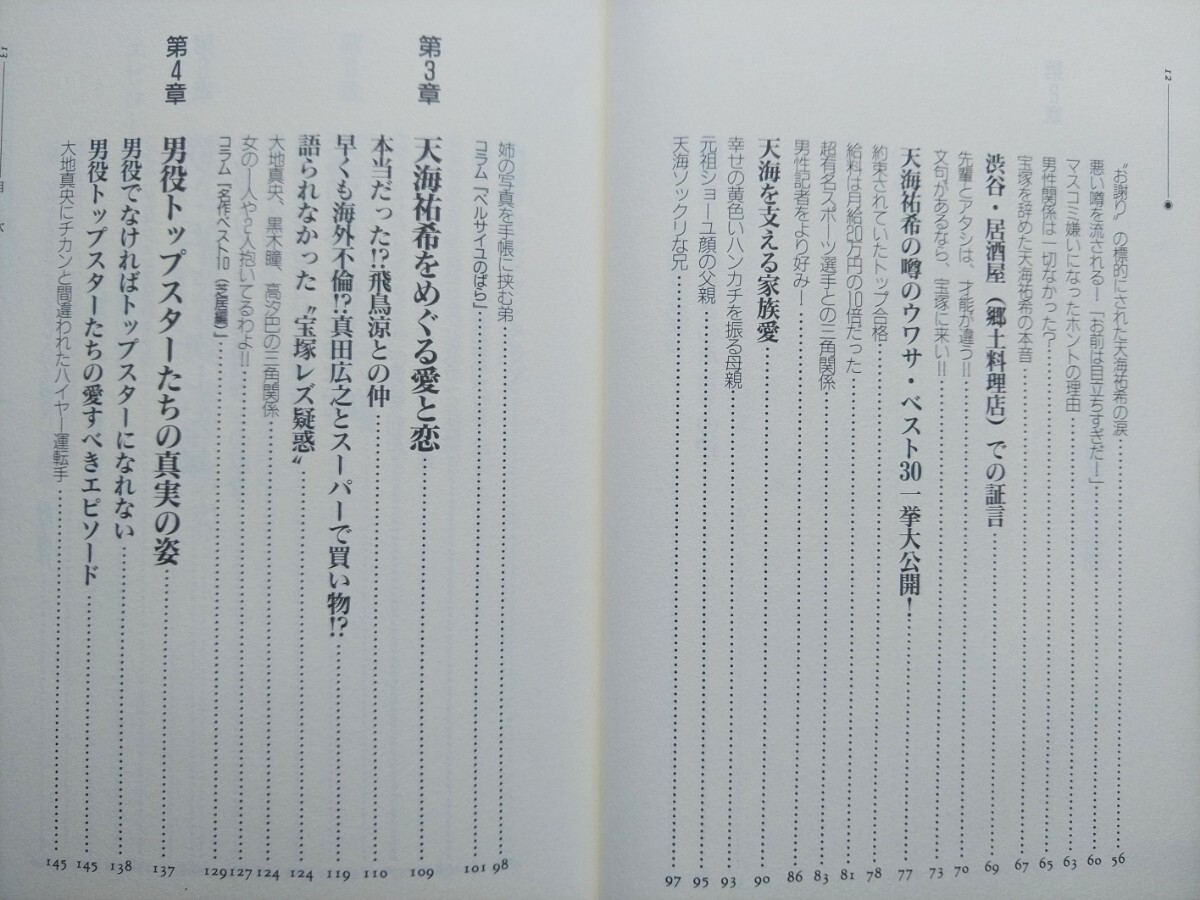 12
〝お謝り〟の標的にされた天海祐希の涙 56
悪い噂を流される！「お前は目立ちすぎだ！」 60
マスコミ嫌いになったホントの理由 63
男性関係は一切なかった？ 65
宝塚を辞めた天海祐希の本音 67
渋谷・居酒屋（郷土料理店）での証言 69
先輩とアタシは、才能が違う!! 70
文句があるなら、宝塚に来い!! 73
天海祐希の噂のウワサ・ベスト30一挙大公開！ 77
約束されていたトップ合格 78
給料は月給20万円の10倍だった 81
超有名スポーツ選手との三角関係 83
男性記者をより好み！ 86
天海を支える家族愛 90
幸せの黄色いハンカチを振る母親 93
元祖ショーユ顔の父親 95
天海ソックリな兄 97
姉の写真を手帳に挟む弟 98
コラム「ベルサイユのばら」 101
第3章 天海祐希をめぐる愛と恋 109
本当だった!?飛鳥涼との仲 110
早くも海外不倫!?真田広之とスーパーで買い物!? 119
語られなかった〝宝塚レズ疑惑〟 124
大地真央、黒木瞳、高汐巴の三角関係 124
女の一人や2人抱いてるわよ!! 127
コラム「名作ベスト10（芝居編）」 129
第4章 男役トップスターたちの真実の姿 137
男役でなければトップスターになれない 138
男役トップスターたちの愛すべきエピソード 145
大地真央にチカンと間違われたハイヤー運転手 145
13
目 次